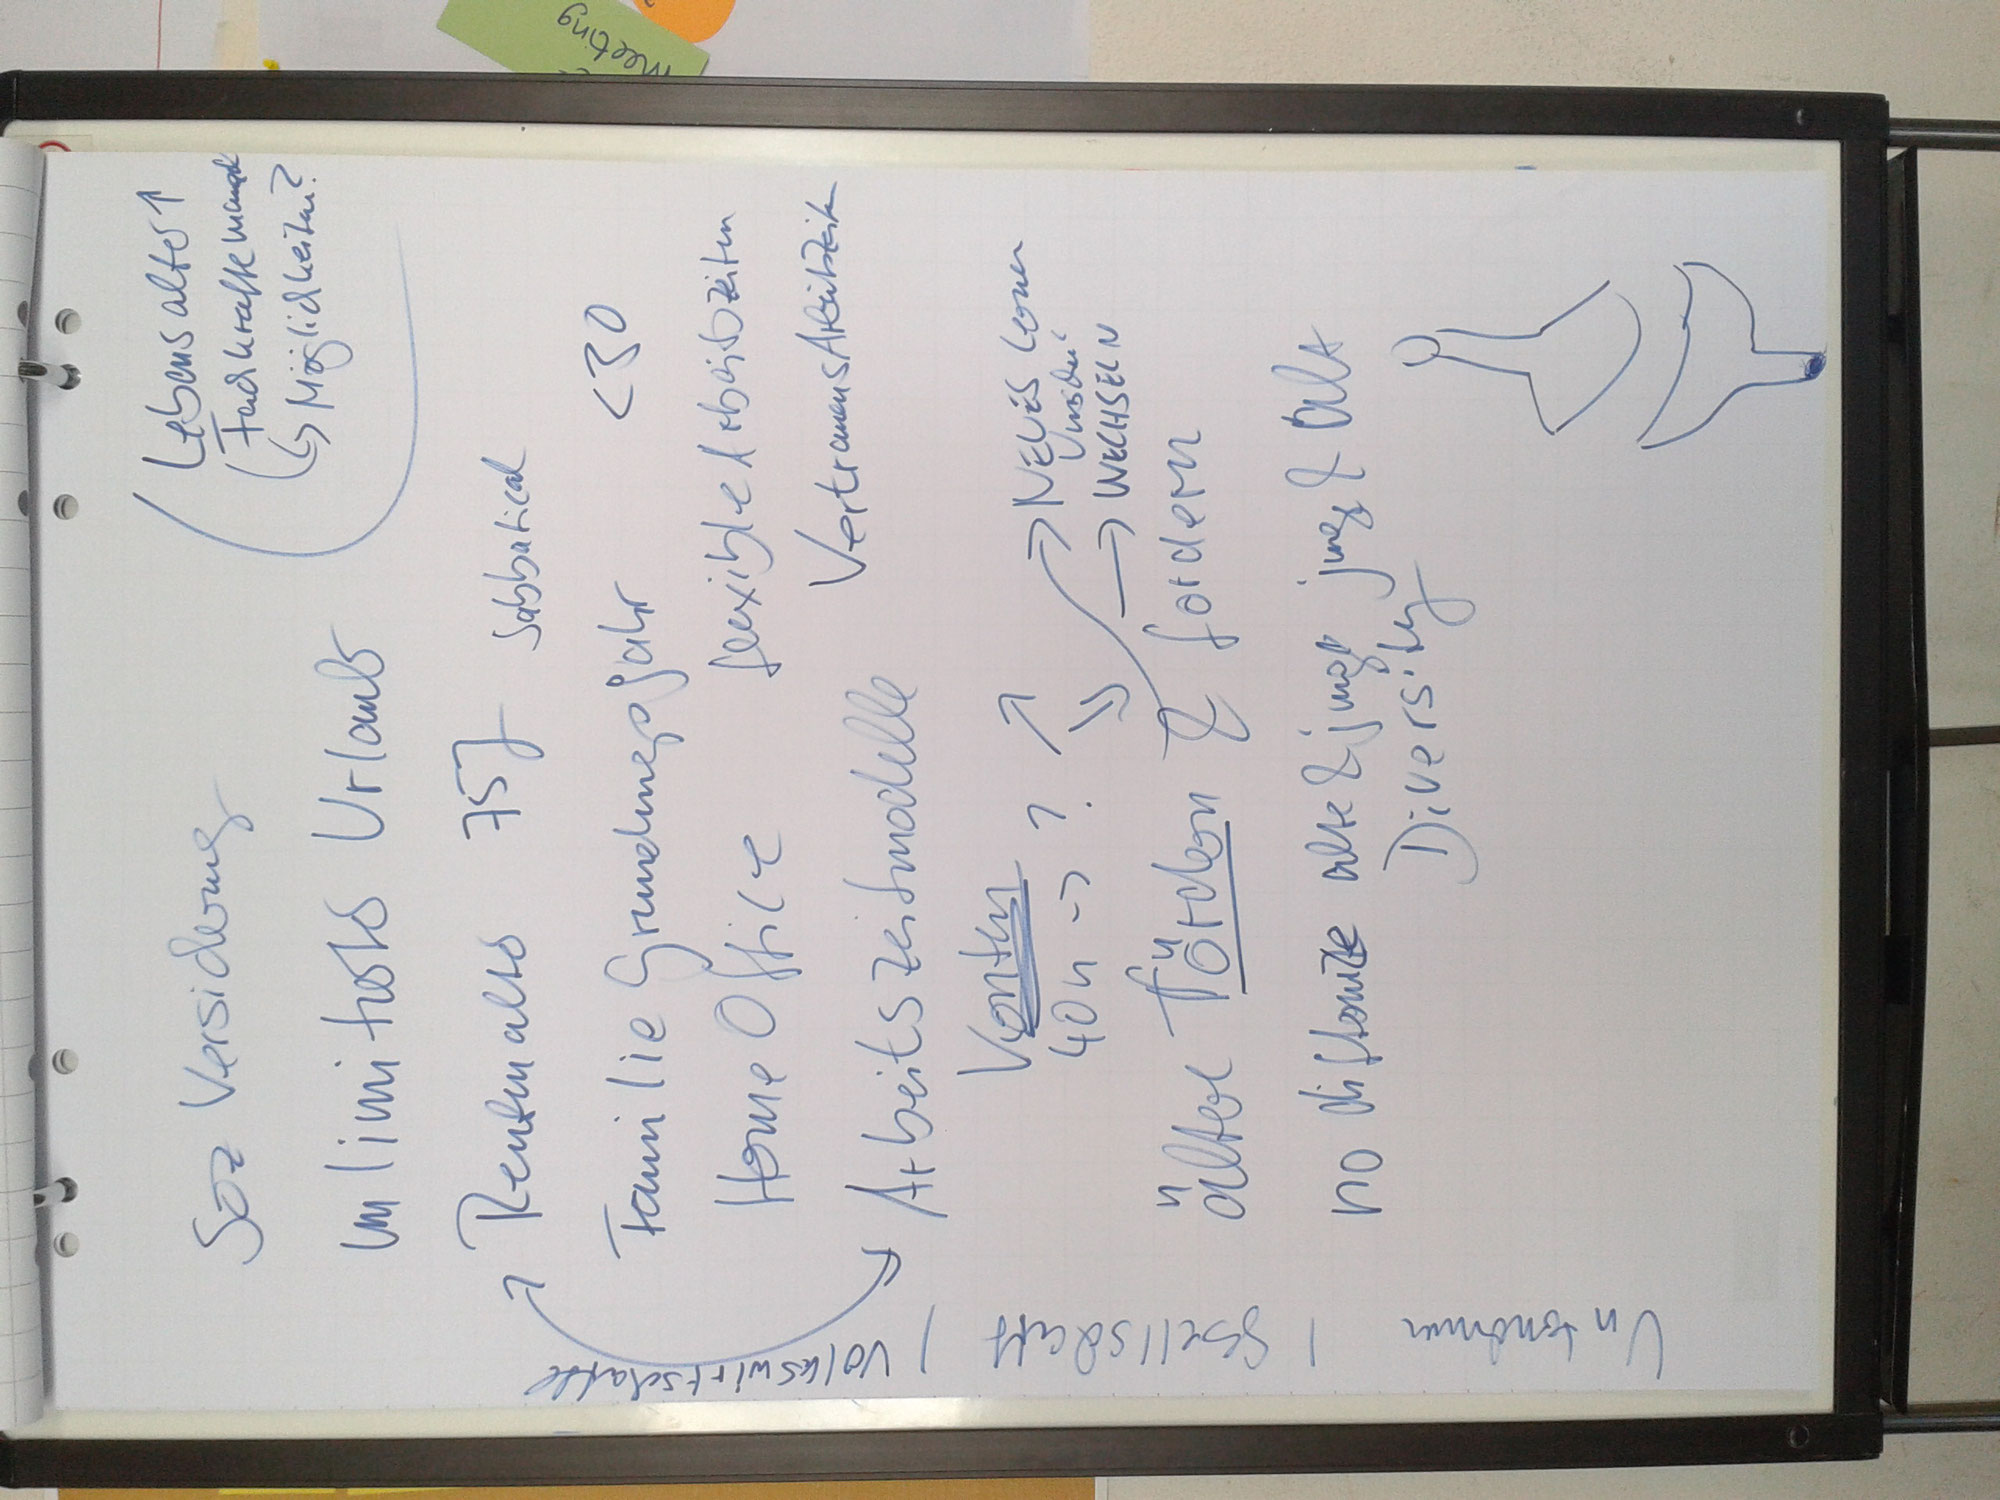 Lebensalter↑
Fachkräftemangel
↳ Möglichkeiten?
Soz Versicherung
unlimitets Urlaub
Rentenalter 75J Sabbatical
Familie Gründungsjahr <30
Home Office flexible Arbeitszeiten
Arbeitszeitmodelle Vertrauensarbeitszeit
→ NEUES Lernen
→ WECHSELN
40h → ?
ältere für Fördern & fordern
no alte & junge jung & alt
Diversity
Unternehmen | Gesellschaft | Volkswirtschaft
Meeting